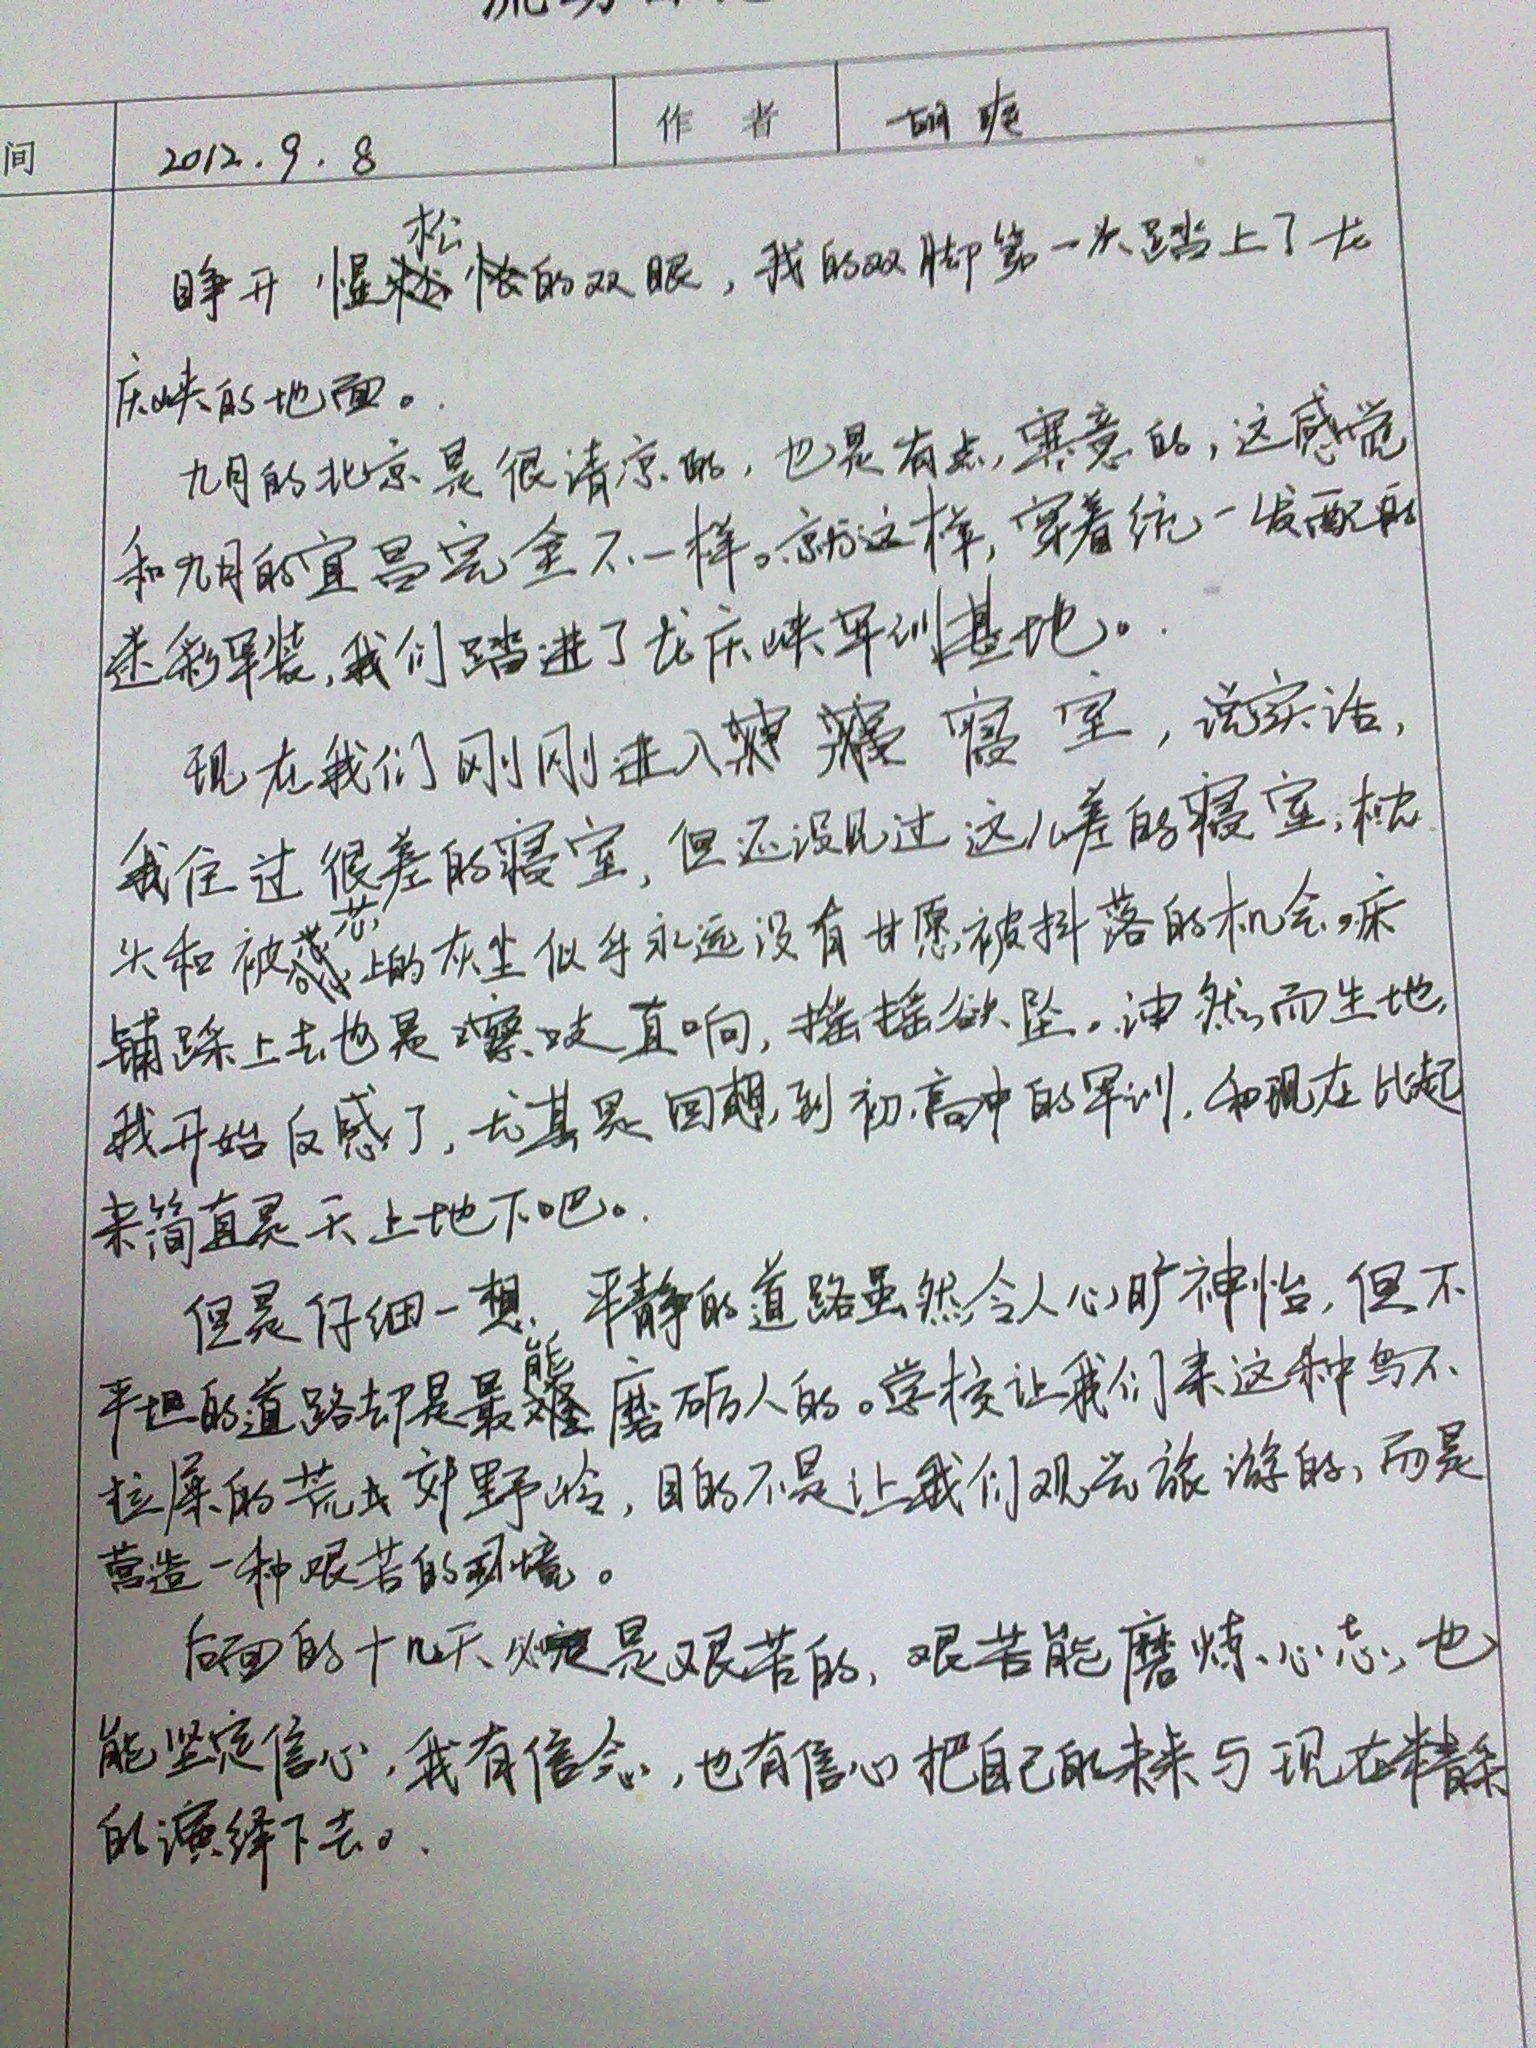 间 2012.9.8 作者 胡爽
睁开惺松的双眼，我的双脚第一次踏上了龙
庆峡的地面。
九月的北京是很清凉的，也是有点寒意的，这感觉
和九月的宜昌完全不一样。就这样，穿着统一发配的
迷彩军装，我们踏进了龙庆峡军训基地。
现在我们刚刚进入寝室，说实话，
我住过很差的寝室，但还没见过这么差的寝室，枕
头和被芯上的灰尘似乎永远没有甘愿被抖落的机会。床
铺踩上去也是嚓吱直响，摇摇欲坠。油然而生地，
我开始反感了，尤其是回想到初高中的军训，和现在比起
来简直是天上地下吧。
但是仔细一想，平静的道路虽然令人心旷神怡，但不
平坦的道路却是最能磨砺人的。学校让我们来这种鸟不
拉屎的荒郊野岭，目的不是让我们观光旅游的，而是
营造一种艰苦的环境。
后面的十几天必定是艰苦的，艰苦能磨炼心志，也
能坚定信心，我有信念，也有信心把自己的未来与现在精彩
的演绎下去。